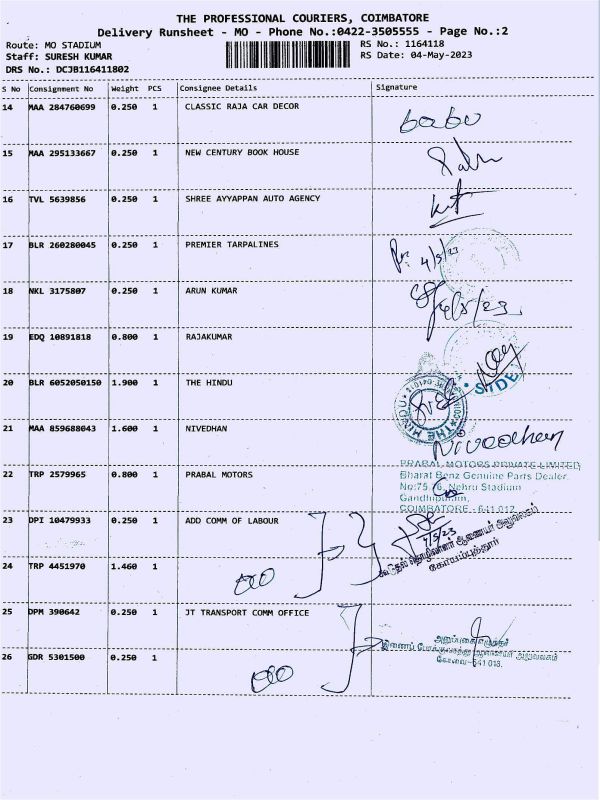 THE PROFESSIONAL COURIERS, COIMBATORE
Delivery Runsheet - MO - Phone No.:0422-3505555 - Page No.:2
Route: MO STADIUM RS No.: 1164118
Staff: SURESH KUMAR RS Date: 04-May-2023
DRS No.: DCJB116411802
S No Consignment No Weight PCS Consignee Details Signature
14 MAA 284760699 0.250 1 CLASSIC RAJA CAR DECOR babu
15 MAA 295133667 0.250 1 NEW CENTURY BOOK HOUSE
16 TVL 5639856 0.250 1 SHREE AYYAPPAN AUTO AGENCY
17 BLR 260280045 0.250 1 PREMIER TARPALINES 4/5/23
18 NKL 3175807 0.250 1 ARUN KUMAR 4/5/23
19 EDQ 10891818 0.800 1 RAJAKUMAR
20 BLR 6052050150 1.900 1 THE HINDU THE HINDU
21 MAA 859688043 1.600 1 NIVEDHAN Nivedhan
22 TRP 2579965 0.800 1 PRABAL MOTORS PRABAL MOTORS PRIVATE LIMITED
Bharat Benz Genuine Parts Dealer
No:75,76, Nehru Stadium
Gandhipuram,
COIMBATORE - 641 012
23 DPI 10479933 0.250 1 ADD COMM OF LABOUR 4/5/23
கூடுதல் தொழிலாளர் ஆணையர் அலுவலகம்
கோயம்புத்தூர்
24 TRP 4451970 1.460 1
25 DPM 390642 0.250 1 JT TRANSPORT COMM OFFICE
26 GDR 5301500 0.250 1 இணைப் போக்குவரத்து ஆணையர் அலுவலகம்
கோவை-641 018.